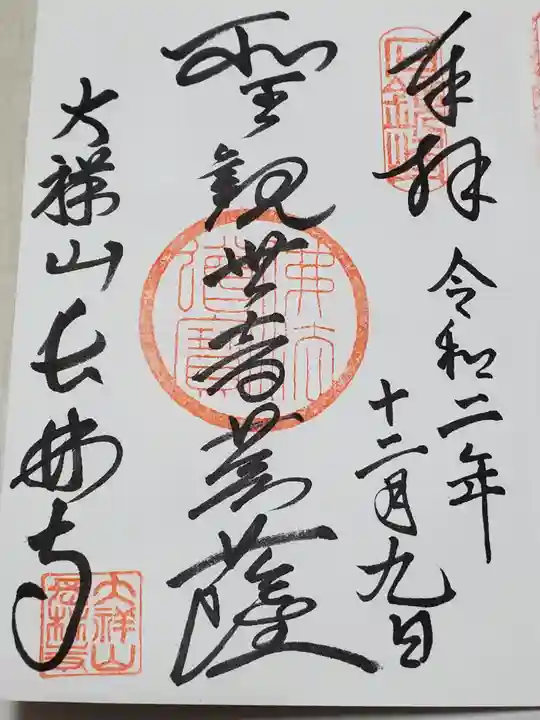 奉拝
令和二年
十二月九日
聖観世音菩薩
佛法僧寶
大祥山長林寺
大祥山長林寺